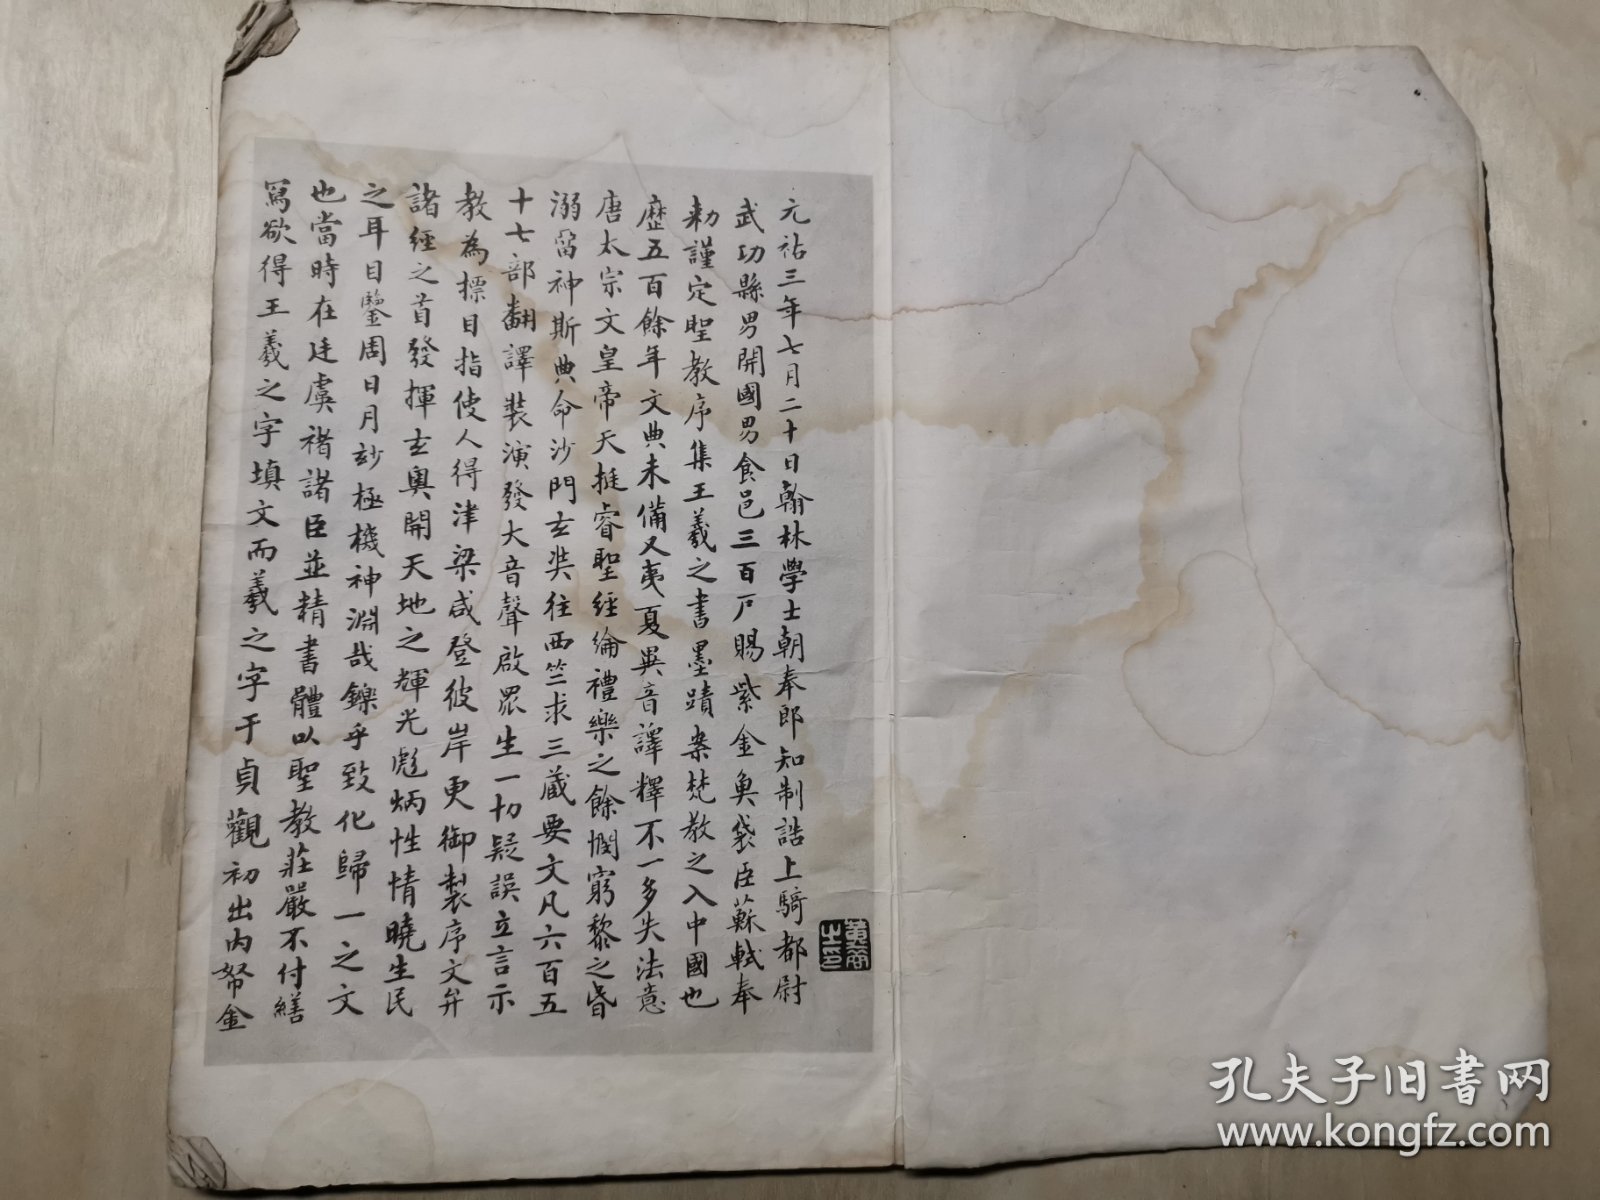 元祐三年七月二十日翰林學士朝奉郎知制誥上騎都尉
武功縣男開國男食邑三百戶賜紫金魚袋臣蘇軾奉
勑謹定聖教序集王羲之書墨蹟案梵教之入中國也
歷五百餘年文典未備又夷夏異音譯釋不一多失法意
唐太宗文皇帝天挺睿聖經綸禮樂之餘憫窮黎之昏
溺留神斯典命沙門玄奘往西竺求三藏要文凡六百五
十七部翻譯裝演發大音聲啟眾生一切疑誤立言示
教為標目指使人得津梁咸登彼岸更御製序文弁
諸經之首發揮玄奧開天地之輝光彪炳性情曉生民
之耳目鑒周日月玅極機神淵哉鑠乎致化歸一之文
也當時在廷虞褚諸臣並精書體以聖教莊嚴不付繕
寫欲得王羲之字填文而羲之字于貞觀初出內帑金
孔夫子旧书网
www.kongfz.com